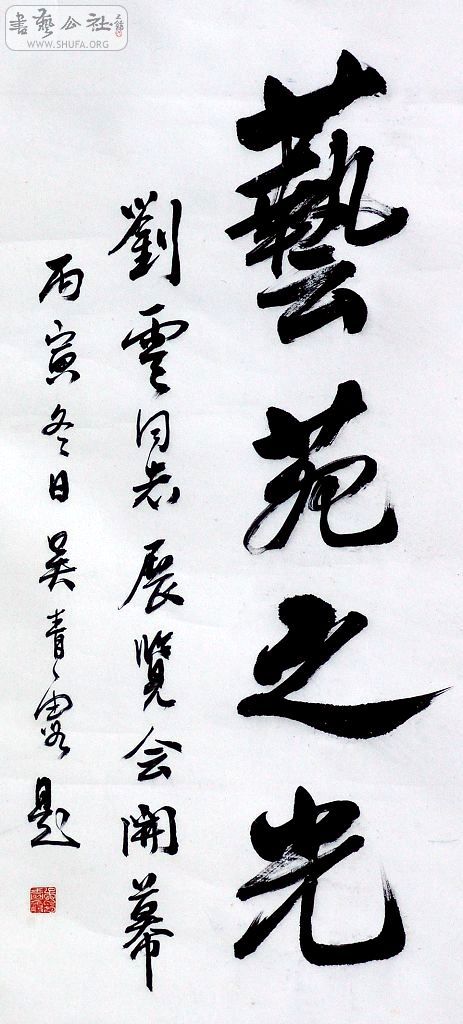 藝苑之光
劉雲同志展覽会開幕
丙寅冬日吳青霞題
書藝公社
WWW.SHUFA.ORG